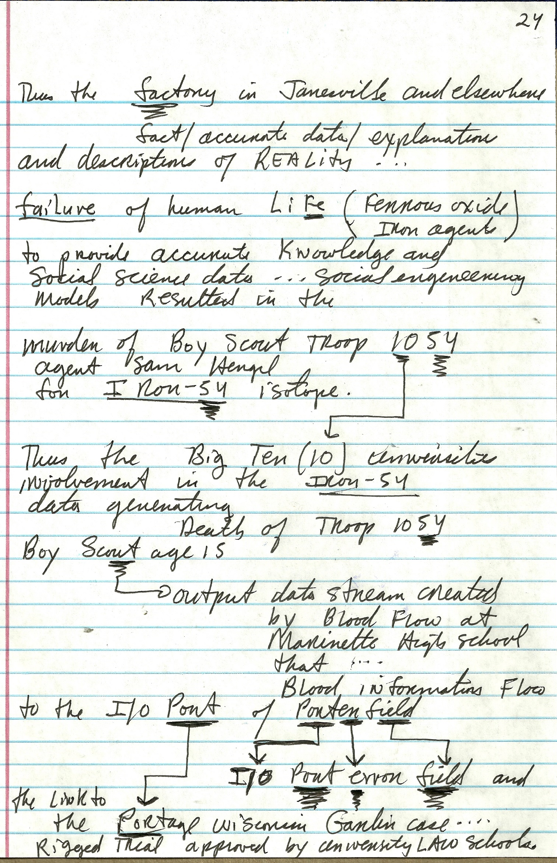 24
Thus the factory in Janesville and elsewhere
fact/accurate data/explanation
and descriptions of REALity ....
failure of human LiFe (Ferrous oxide
Iron agents)
to provide accurate Knowledge and
Social science data ... social engineering
models Resulted in the
murder of Boy Scout Troop 1054
agent Sam Hengel
for IRon-54 isotope.
Thus the Big Ten (10) university
involvement in the Iron-54
data generating
Death of Troop 1054
Boy Scout age 15
output data stream created
by Blood Flow at
Marinette High School
that ....
Blood information Flow
to the I/O Port of Porterfield
I/O Port error field and
the link to
the Portage Wisconsin Ganlin case ....
Rigged Trial approved by university LAW schools